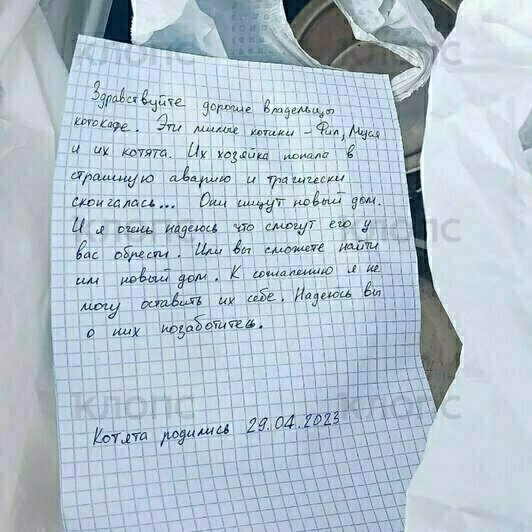 Здравствуйте дорогие владельцы
котокафе. Эти милые котики – Фил, Муся
и их котята. Их хозяйка попала в
страшную аварию и трагически
скончалась... Они ищут новый дом.
И я очень надеюсь что смогут его у
вас обрести. Или вы сможете найти
им новый дом. К сожалению я не
могу оставить их себе. Надеюсь вы
о них позаботитесь.
Котята родились 29.04.2023
КЛОПС
КЛОПС
КЛОПС
КЛОПС
КЛОПС
КЛОПС